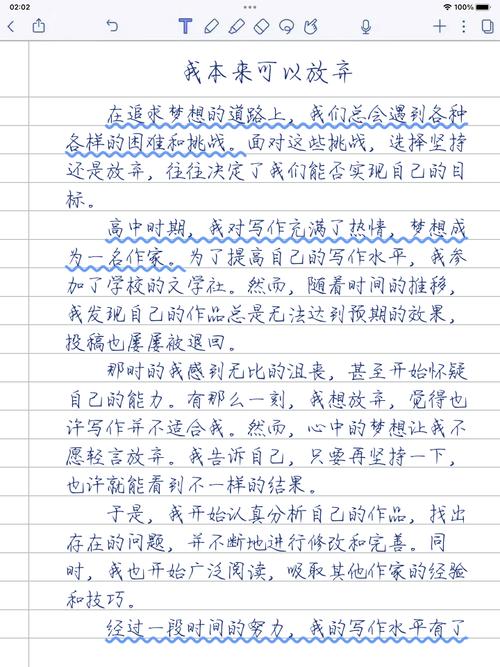 02:02
100%
我本来可以放弃
在追求梦想的道路上，我们总会遇到各种
各样的困难和挑战。面对这些挑战，选择坚持
还是放弃，往往决定了我们能否实现自己的目
标。
高中时期，我对写作充满了热情，梦想成
为一名作家。为了提高自己的写作水平，我参
加了学校的文学社。然而，随着时间的推移，
我发现自己的作品总是无法达到预期的效果，
投稿也屡屡被退回。
那时的我感到无比的沮丧，甚至开始怀疑
自己的能力。有那么一刻，我想放弃，觉得也
许写作并不适合我。然而，心中的梦想让我不
愿轻言放弃。我告诉自己，只要再坚持一下，
也许就能看到不一样的结果。
于是，我开始认真分析自己的作品，找出
存在的问题，并不断地进行修改和完善。同
时，我也开始广泛阅读，吸取其他作家的经验
和技巧。
经过一段时间的努力，我的写作水平有了